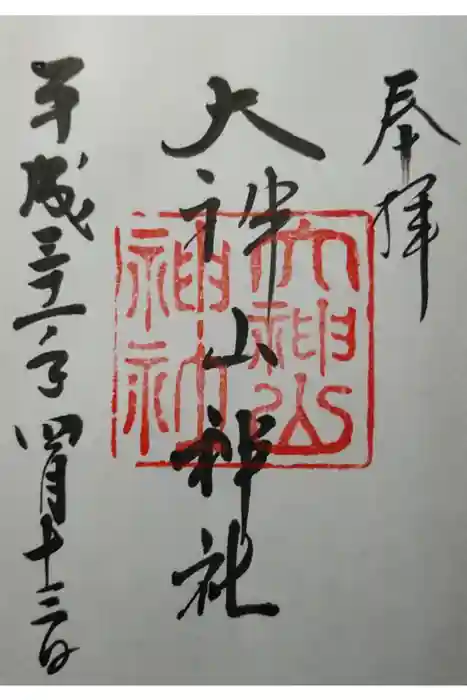 奉拝
大神山神社
平成三十一年四月十三日
大神山
神社